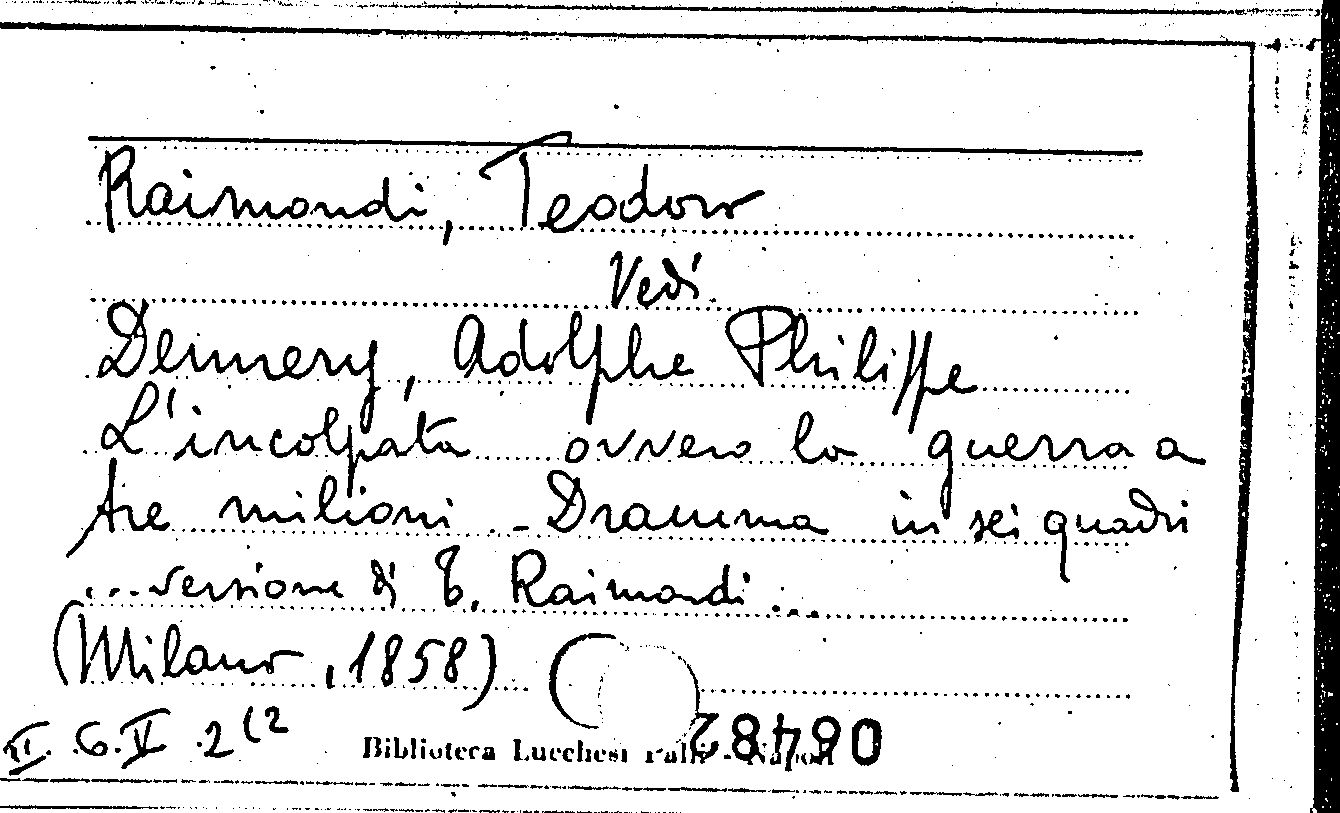 Raimondi, Teodoro
Vedi
Dennery, Adolphe Philippe
L'incolpata ovvero la guerra a
tre milioni - Dramma in sei quadri
... versione di T. Raimondi ...
(Milano, 1858)
6. V 2 (2
Biblioteca Lucchesi Palli - Napoli
06482